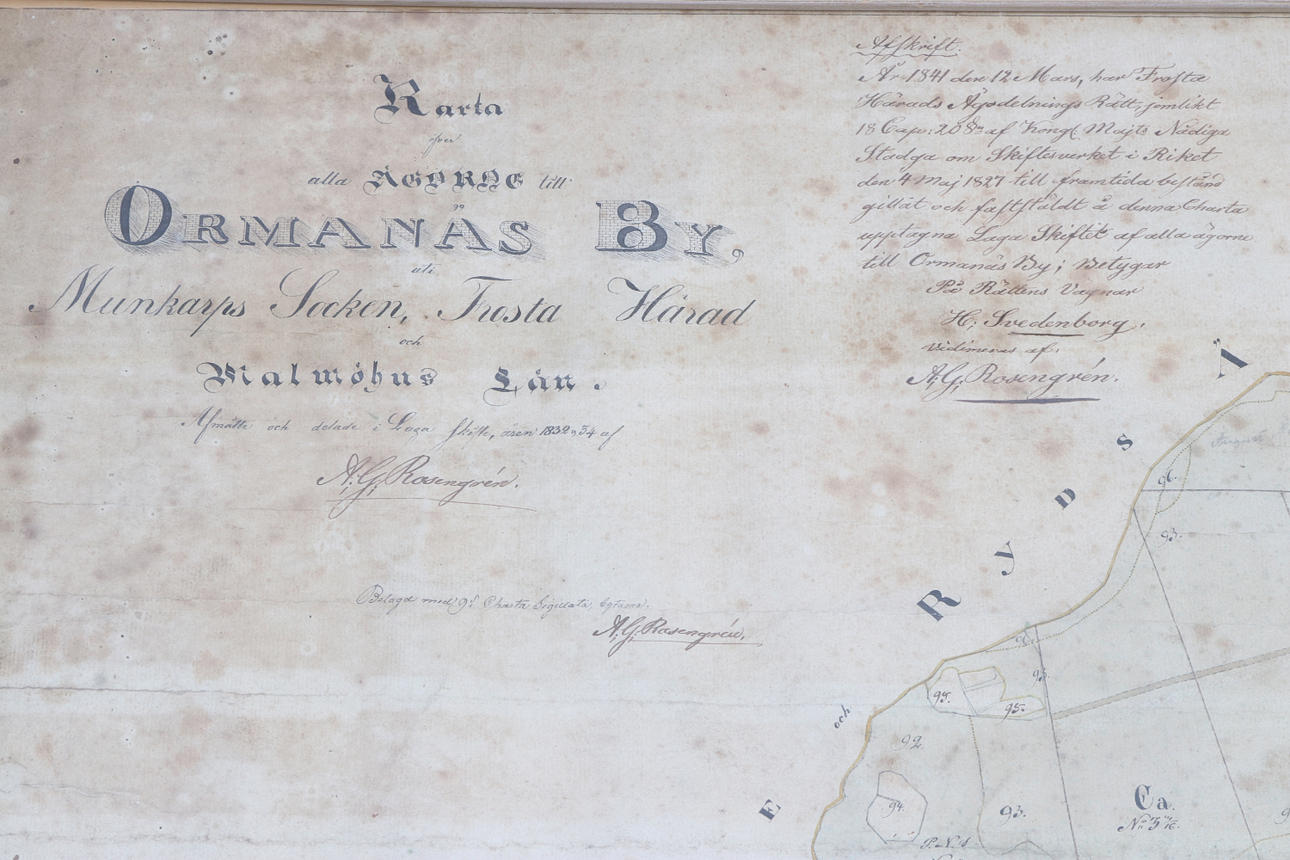 Karta
öfver
alla ÄGORNE till
ORMANÄS BY,
uti
Munkarps Socken, Frosta Härad
och
Malmöhus Län.
Afmätte och delade i Laga Skifte, åren 1832 & 34 af
A. G. Rosengrén.
Belagd med 9 Charta Sigillata, betygar.
A. G. Rosengrén.
Afskrift.
År 1841 den 12 Mars, har Frosta
Härads Ägodelnings Rätt, jemlikt
18 Cap: 20 § af Kongl. Majts Nådiga
Stadga om Skiftesverket i Riket
den 4 Maj 1827 till framtida bestånd
gillat och fastställdt å denna Charta
upptagna Laga Skiftet af alla ägorne
till Ormanäs By; Betygar
På Rättens Vagnar
H. Svedenborg.
Vidimeras af.
A. G. Rosengrén.
R Y D S Ä
E och
96.
93.
93.
95.
95.
92.
94.
93.
Ca.